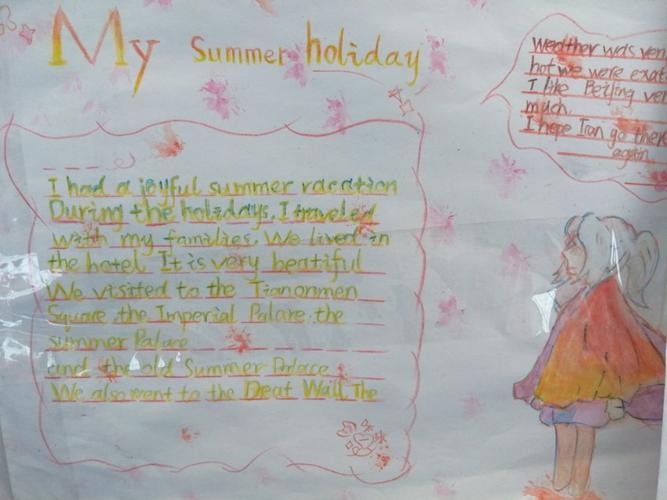 My Summer holiday
I had a joyful summer vacation
During the holidays, I traveled
with my families. We lived in
the hotel. It is very beatiful
We visited to the Tiananmen
Square, the Imperial Palare, the
summer Palare
and the old Summer Palace.
We also went to the Dreat Wall. The
Weather was ver
hot we were exat
I like Beijing ver
much.
I hope I can go there
again.